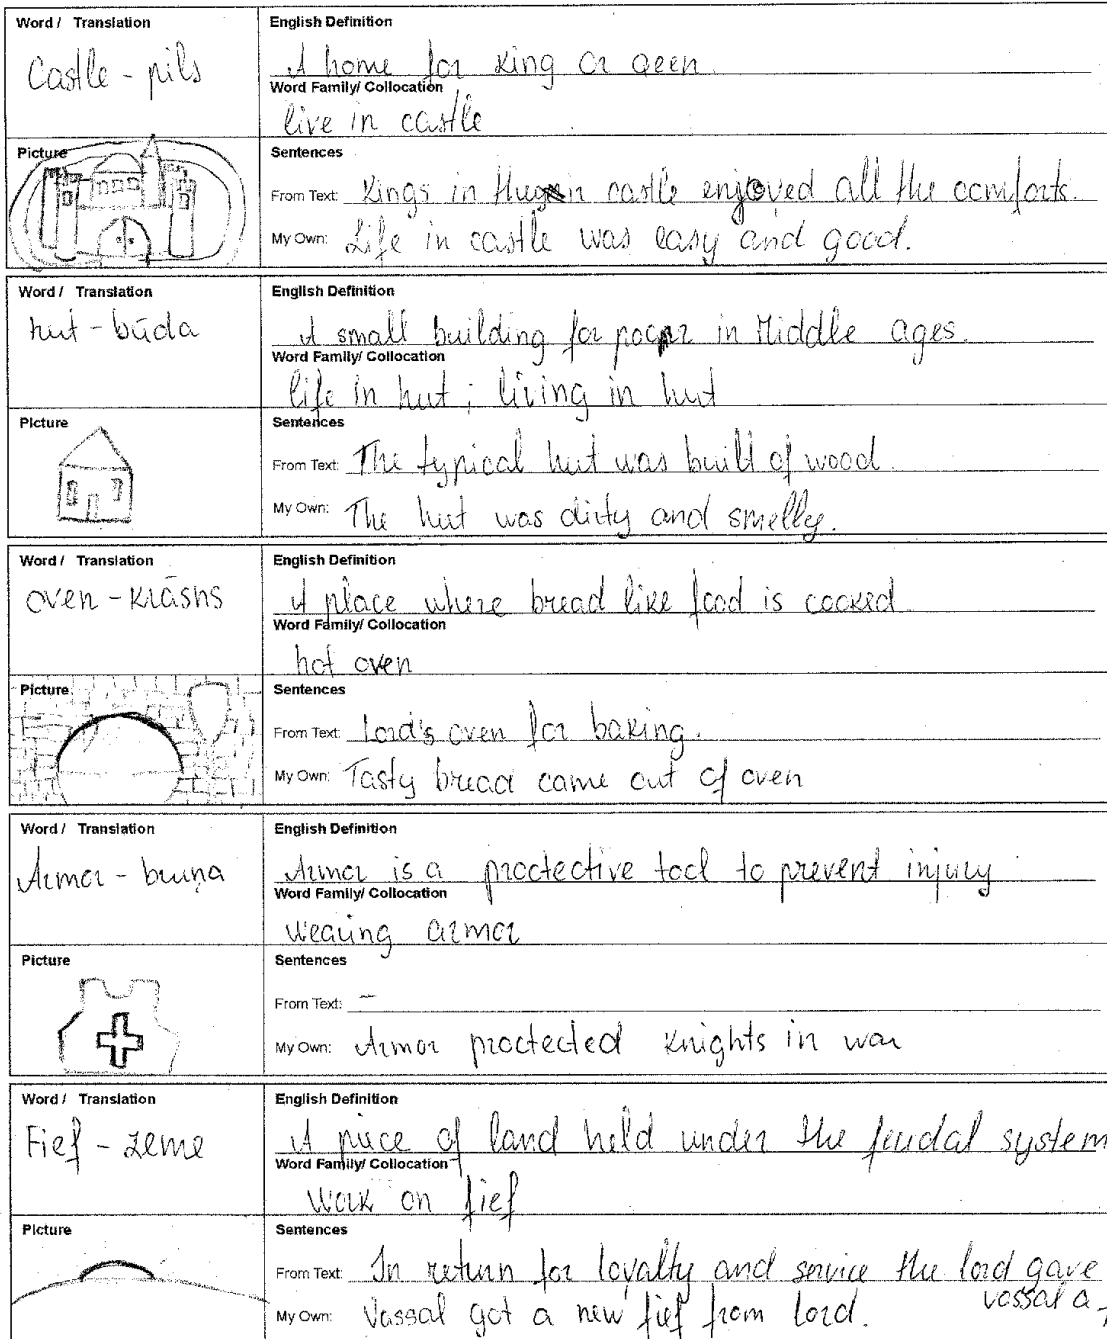 Word / Translation
English Definition
Castle - pils
A home for king or qeen.
Word Family/ Collocation
live in castle
Picture
Sentences
From Text: Kings in castle enjoyed all the comforts.
My Own: Life in castle was easy and good.
Word / Translation
English Definition
hut - būda
A small building for poor in Middle ages.
Word Family/ Collocation
life in hut ; living in hut
Picture
Sentences
From Text: The typical hut was built of wood.
My Own: The hut was dirty and smelly.
Word / Translation
English Definition
oven - krāsns
A place where bread like food is cooked.
Word Family/ Collocation
hot oven
Picture
Sentences
From Text: Lord's oven for baking.
My Own: Tasty bread came out of oven
Word / Translation
English Definition
Armor - bruņa
Armor is a proctective tool to prevent injury
Word Family/ Collocation
wearing armor
Picture
Sentences
From Text: –
My Own: Armor proctected knights in war
Word / Translation
English Definition
Fief - zeme
A piece of land held under the feudal system
Word Family/ Collocation
work on fief
Picture
Sentences
From Text: In return for loyalty and service the lord gave
vassal a
My Own: Vassal got a new fief from lord.